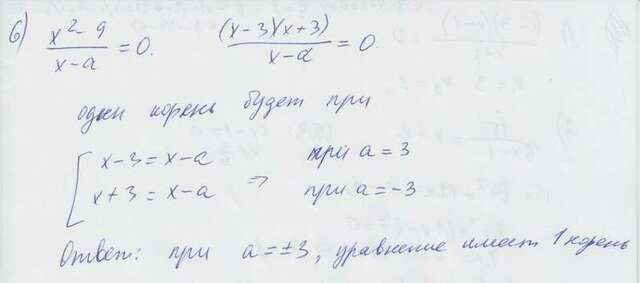 6) (x² - 9)/(x - a) = 0. ((x - 3)(x + 3))/(x - a) = 0
один корень будет при
[ x - 3 = x - a при a = 3
x + 3 = x - a ⇒ при a = -3
Ответ: при a = ±3, уравнение имеет 1 корень